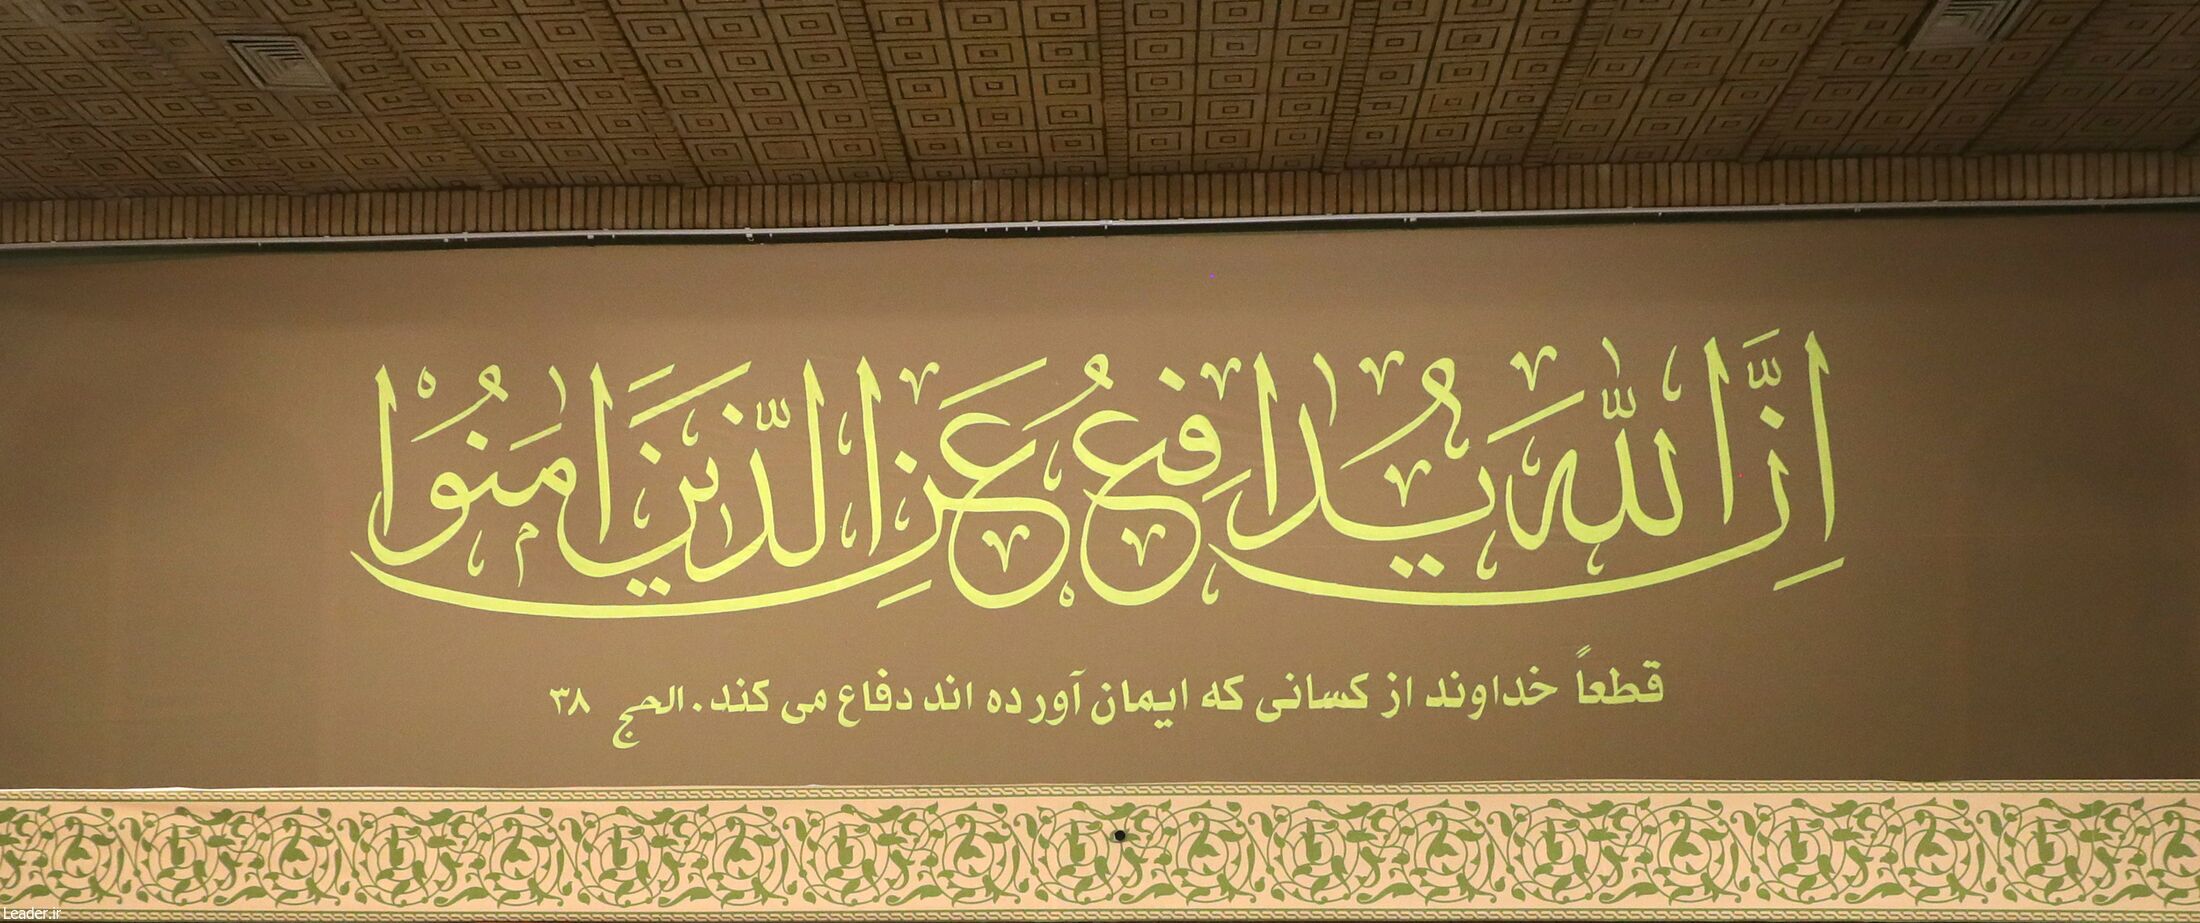 اِنَّ اللهَ یُدافِعُ عَنِ الَّذینَ امَنُوا
قطعاً خداوند از کسانی که ایمان آورده اند دفاع می کند. الحج ۳۸
Leader.ir